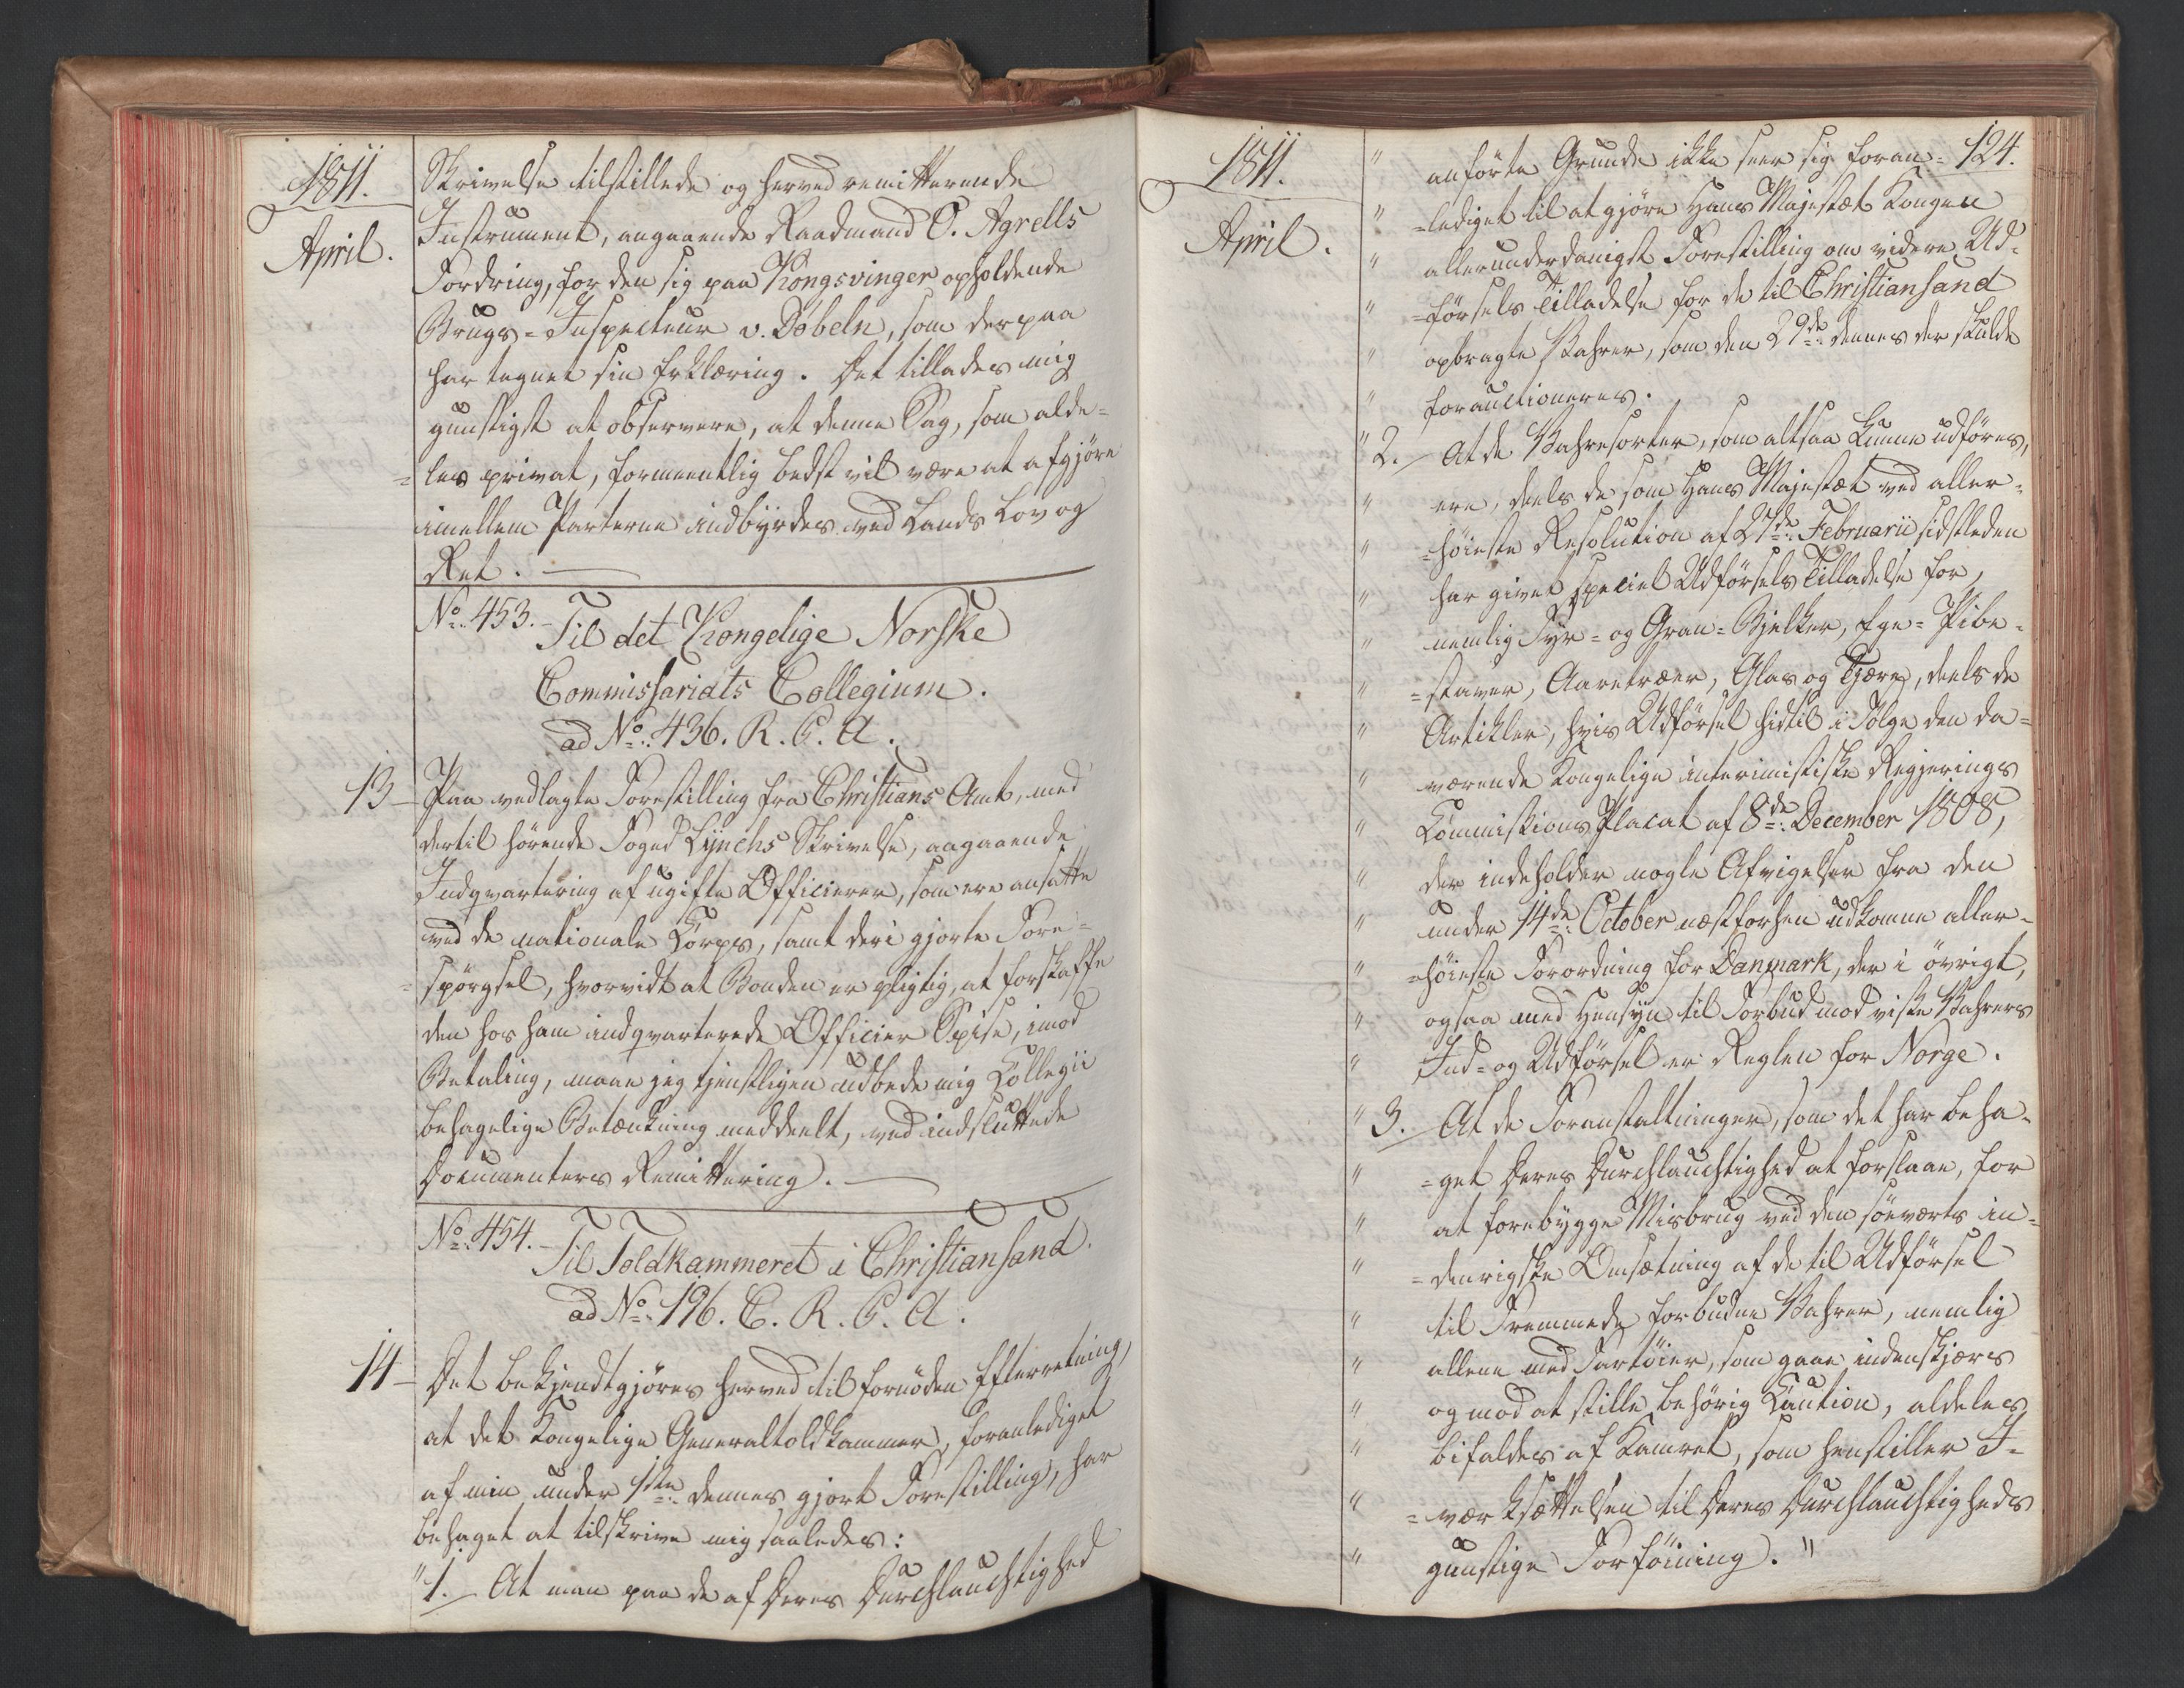 1811.
April.
Skrivelse tilstillede og herved remitterende
Instrument, angaaende Raadmand O. Agrells
Fordring, for den sig paa Kongsvinger opholdende
Brugs-Inspecteur v. Döbeln, som derpaa
har tegnet sin Erklæring. Det tillades mig
gunstigst at observere, at denne Sag, som alde=
=les privat, formeentlig bedst vil være at afgjöre
imellem Parterne indbÿrdes ved Lands Lov og
Ret.
No. 453.
Til det Kongelige Norske
Commissariats Collegium.
ad No. 436. R. C. A.
13 Paa vedlagte Forestilling fra Christians Amt, med
dertil hörende Foged Lÿnchs Skrivelse, angaaende
Indqvartering af ugifte Officierer, som ere ansatte
ved de nationale Corps, samt deri gjorte Fore=
=spörgsel, hvorvidt at Bonden er pligtig, at forskaffe
den hos ham indqvarterede Officier Spise, imod
Betaling, maae jeg tjenstligen udbede mig Collegii
behagelige Betænkning meddeelt, ved indsluttede
Documenters Remittering.
No. 454.
Til Toldkammeret i Christiansand.
ad No. 196. C. R. C. A.
14 Det bekjendtgjöres herved til fornöden Efterretning,
at det Kongelige Generaltoldkammer, foranlediget
af min under 1ste dennes gjort Forestilling, har
behaget at tilskrive mig saaledes:
" 1. At man paa de af Deres Durchlauchtighed
1811.
April.
124.
" anförte Grunde ikke seer sig foran=
" =lediget til at gjöre Hans Majestæt Kongen
" allerunderdanigst Forestilling om videre Ud=
" =försels Tilladelse for de til Christiansand
" opbragte Vahrer, som den 29de dennes der skulde
" forauctioneres.
" 2. At de Vahresorter, som altsaa kunne udföres,
" ere, deels de som Hans Majestæt ved aller=
" =höieste Resolution af 27de Februarii sidstleden
" har givet speciel Udförsels Tilladelse for,
" nemlig Fyr= og Gran=Bjelker, Ege=Pibe=
" =staver, Aaretræer, Glas og Tjære, deels de
" Artikler, hvis Udförsel hidtil i Fölge den da=
" værende Kongelige interimistiske Regjerings
" Commissions Placat af 8de December 1808,
" der indeholder nogle Afvigelser fra den
" under 14de October næstforhen udkomne aller=
" =höieste Forordning for Danmark, der i övrigt,
" ogsaa med Hensÿn til Forbud mod visse Vahrers
" Ind= og Udförsel er Reglen for Norge.
" 3. At de Foranstaltninger, som det har beha=
" =get Deres Durchlauchtighed at forslaae, for
" at forebÿgge Misbrug ved den söeværts in=
" =denrigske Omsætning af de til Udförsel
" til Fremmede forbudne Vahrer, nemlig
" allene med Fartöier, som gaae indenskjærs
" og mod at stille behörig Caution, aldeles
" bifaldes af Kamret, som henstiller I=
" =værksættelsen til Deres Durchlauchtigheds
" gunstige Forföining."